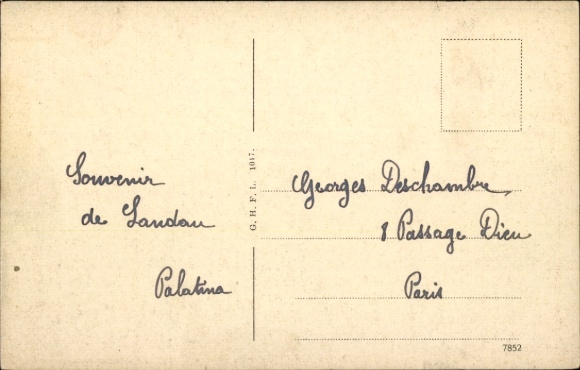 Souvenir
de Landau
Palatina
G. H. F. L. 1047.
Georges Deschambre
8 Passage Dieu
Paris
7852